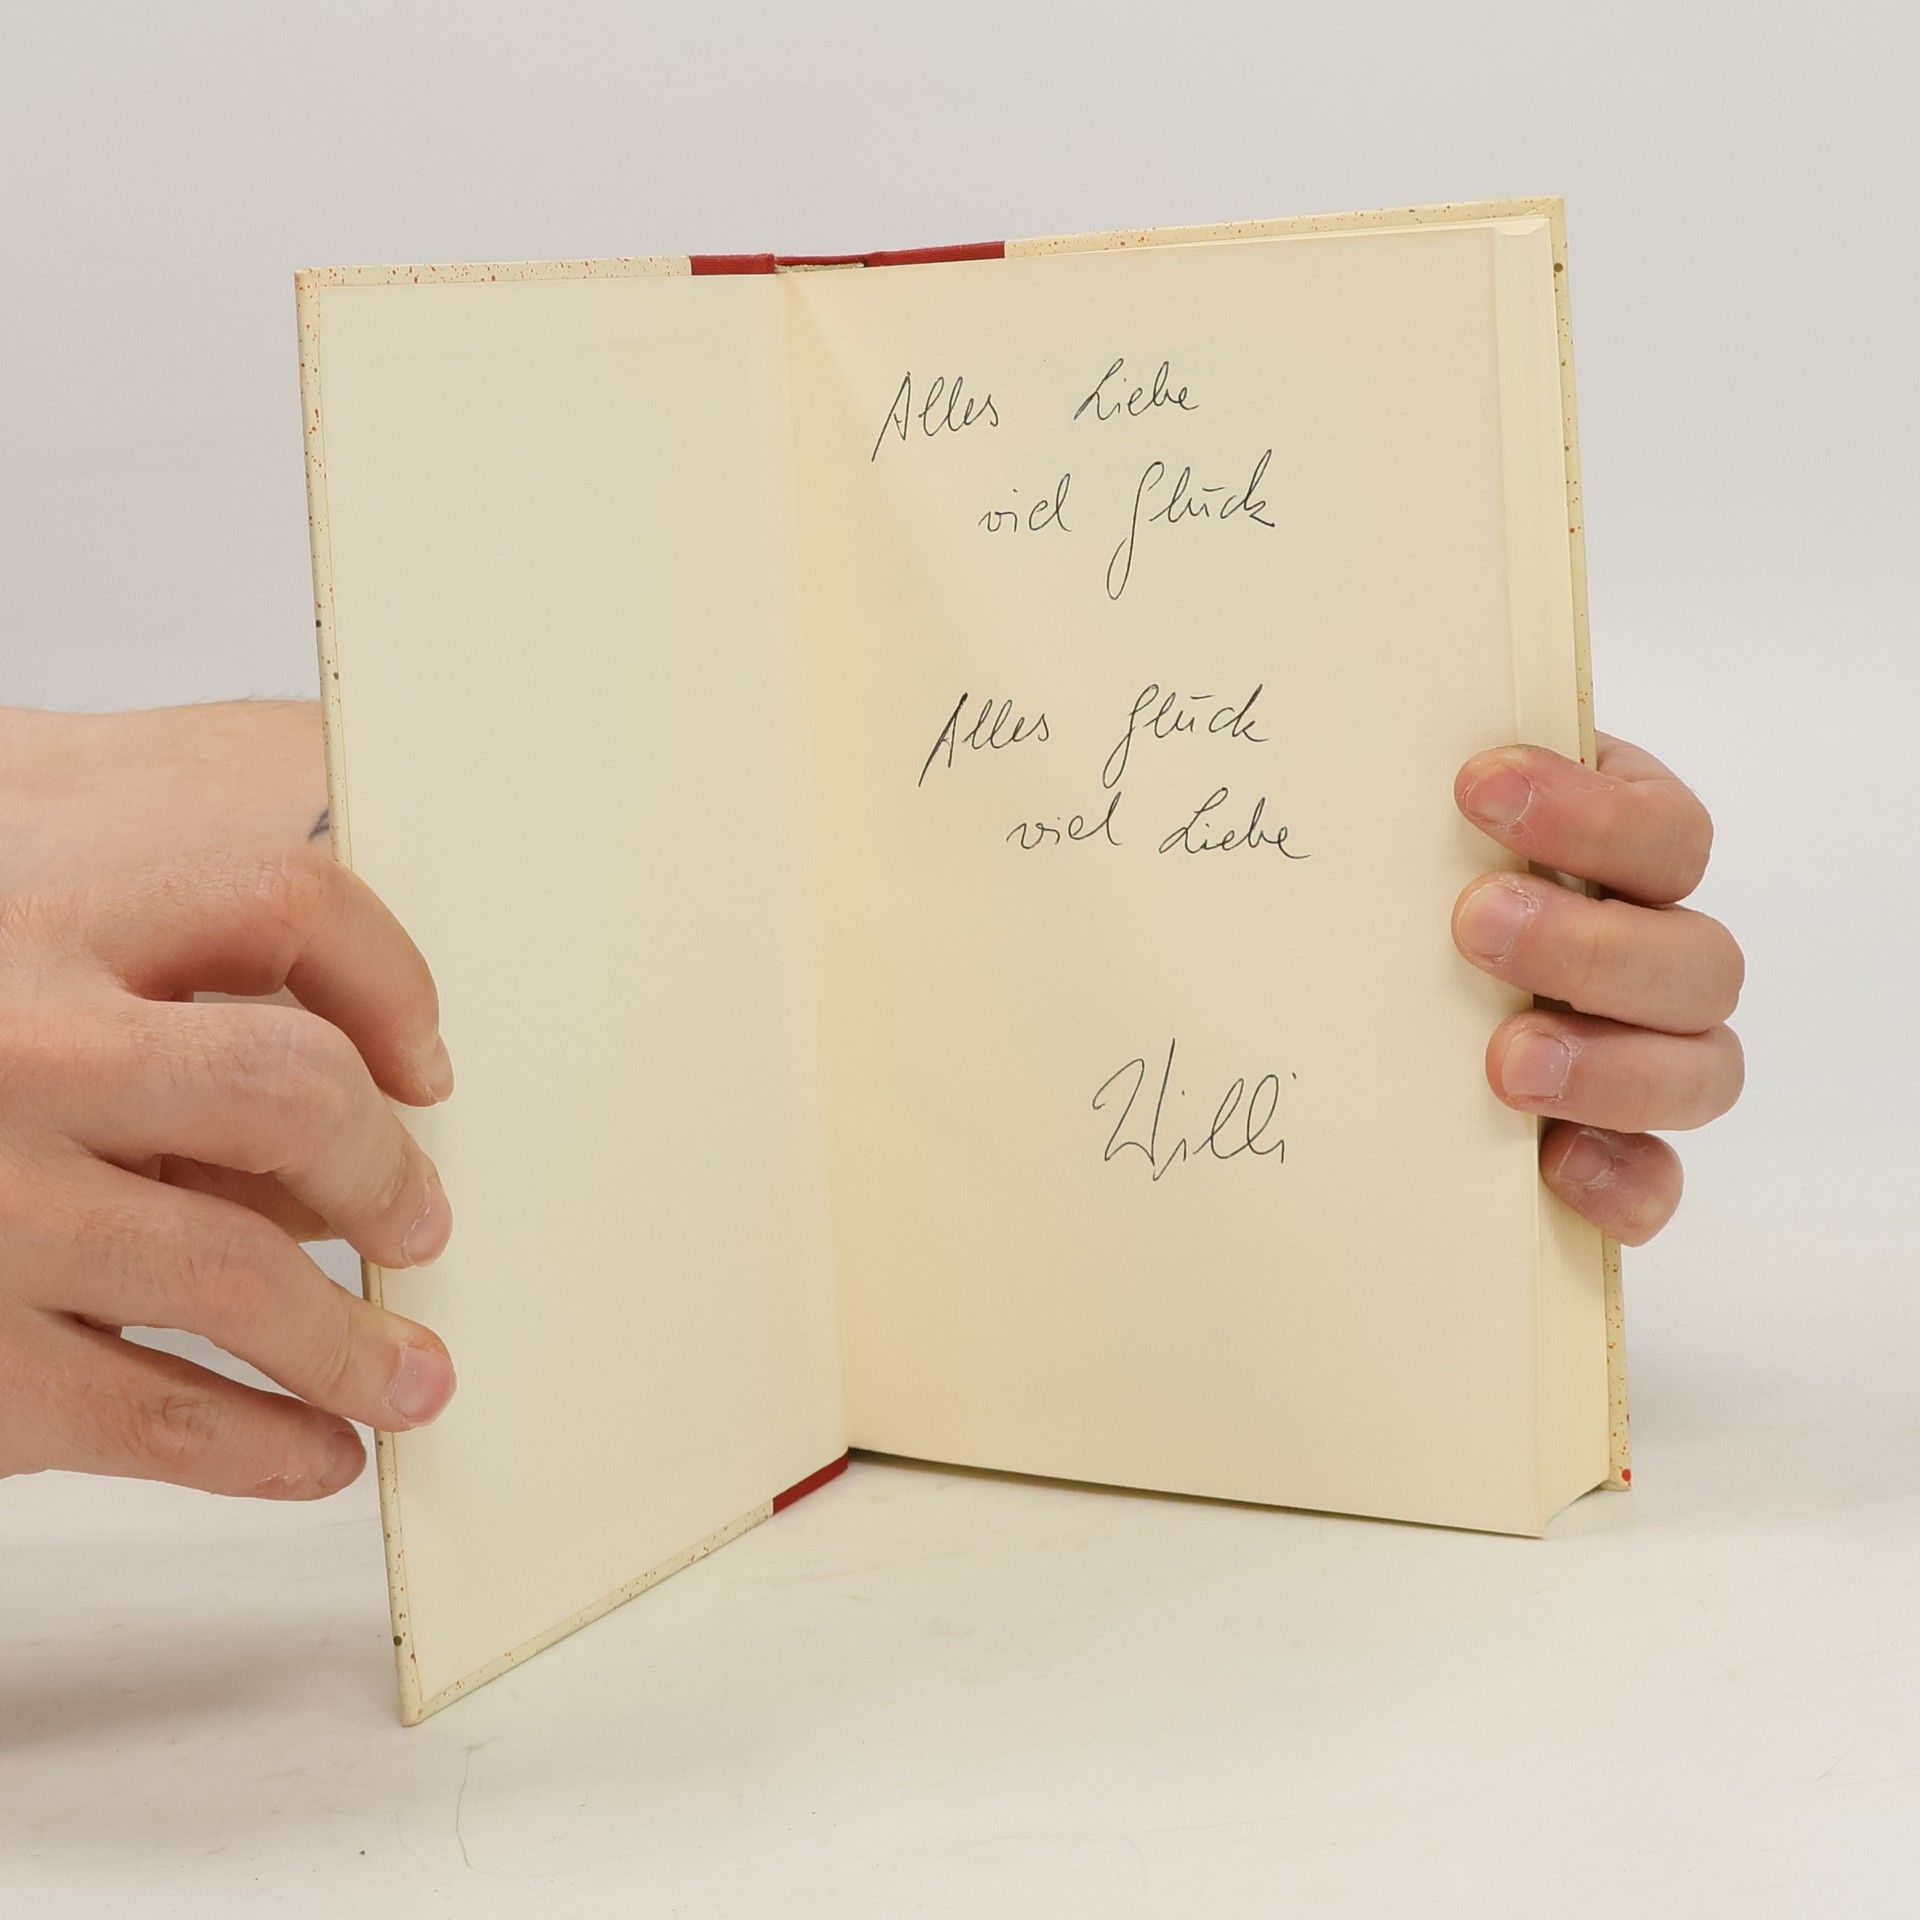 Alles Liebe
viel Glück
Alles Glück
viel Liebe
Willi